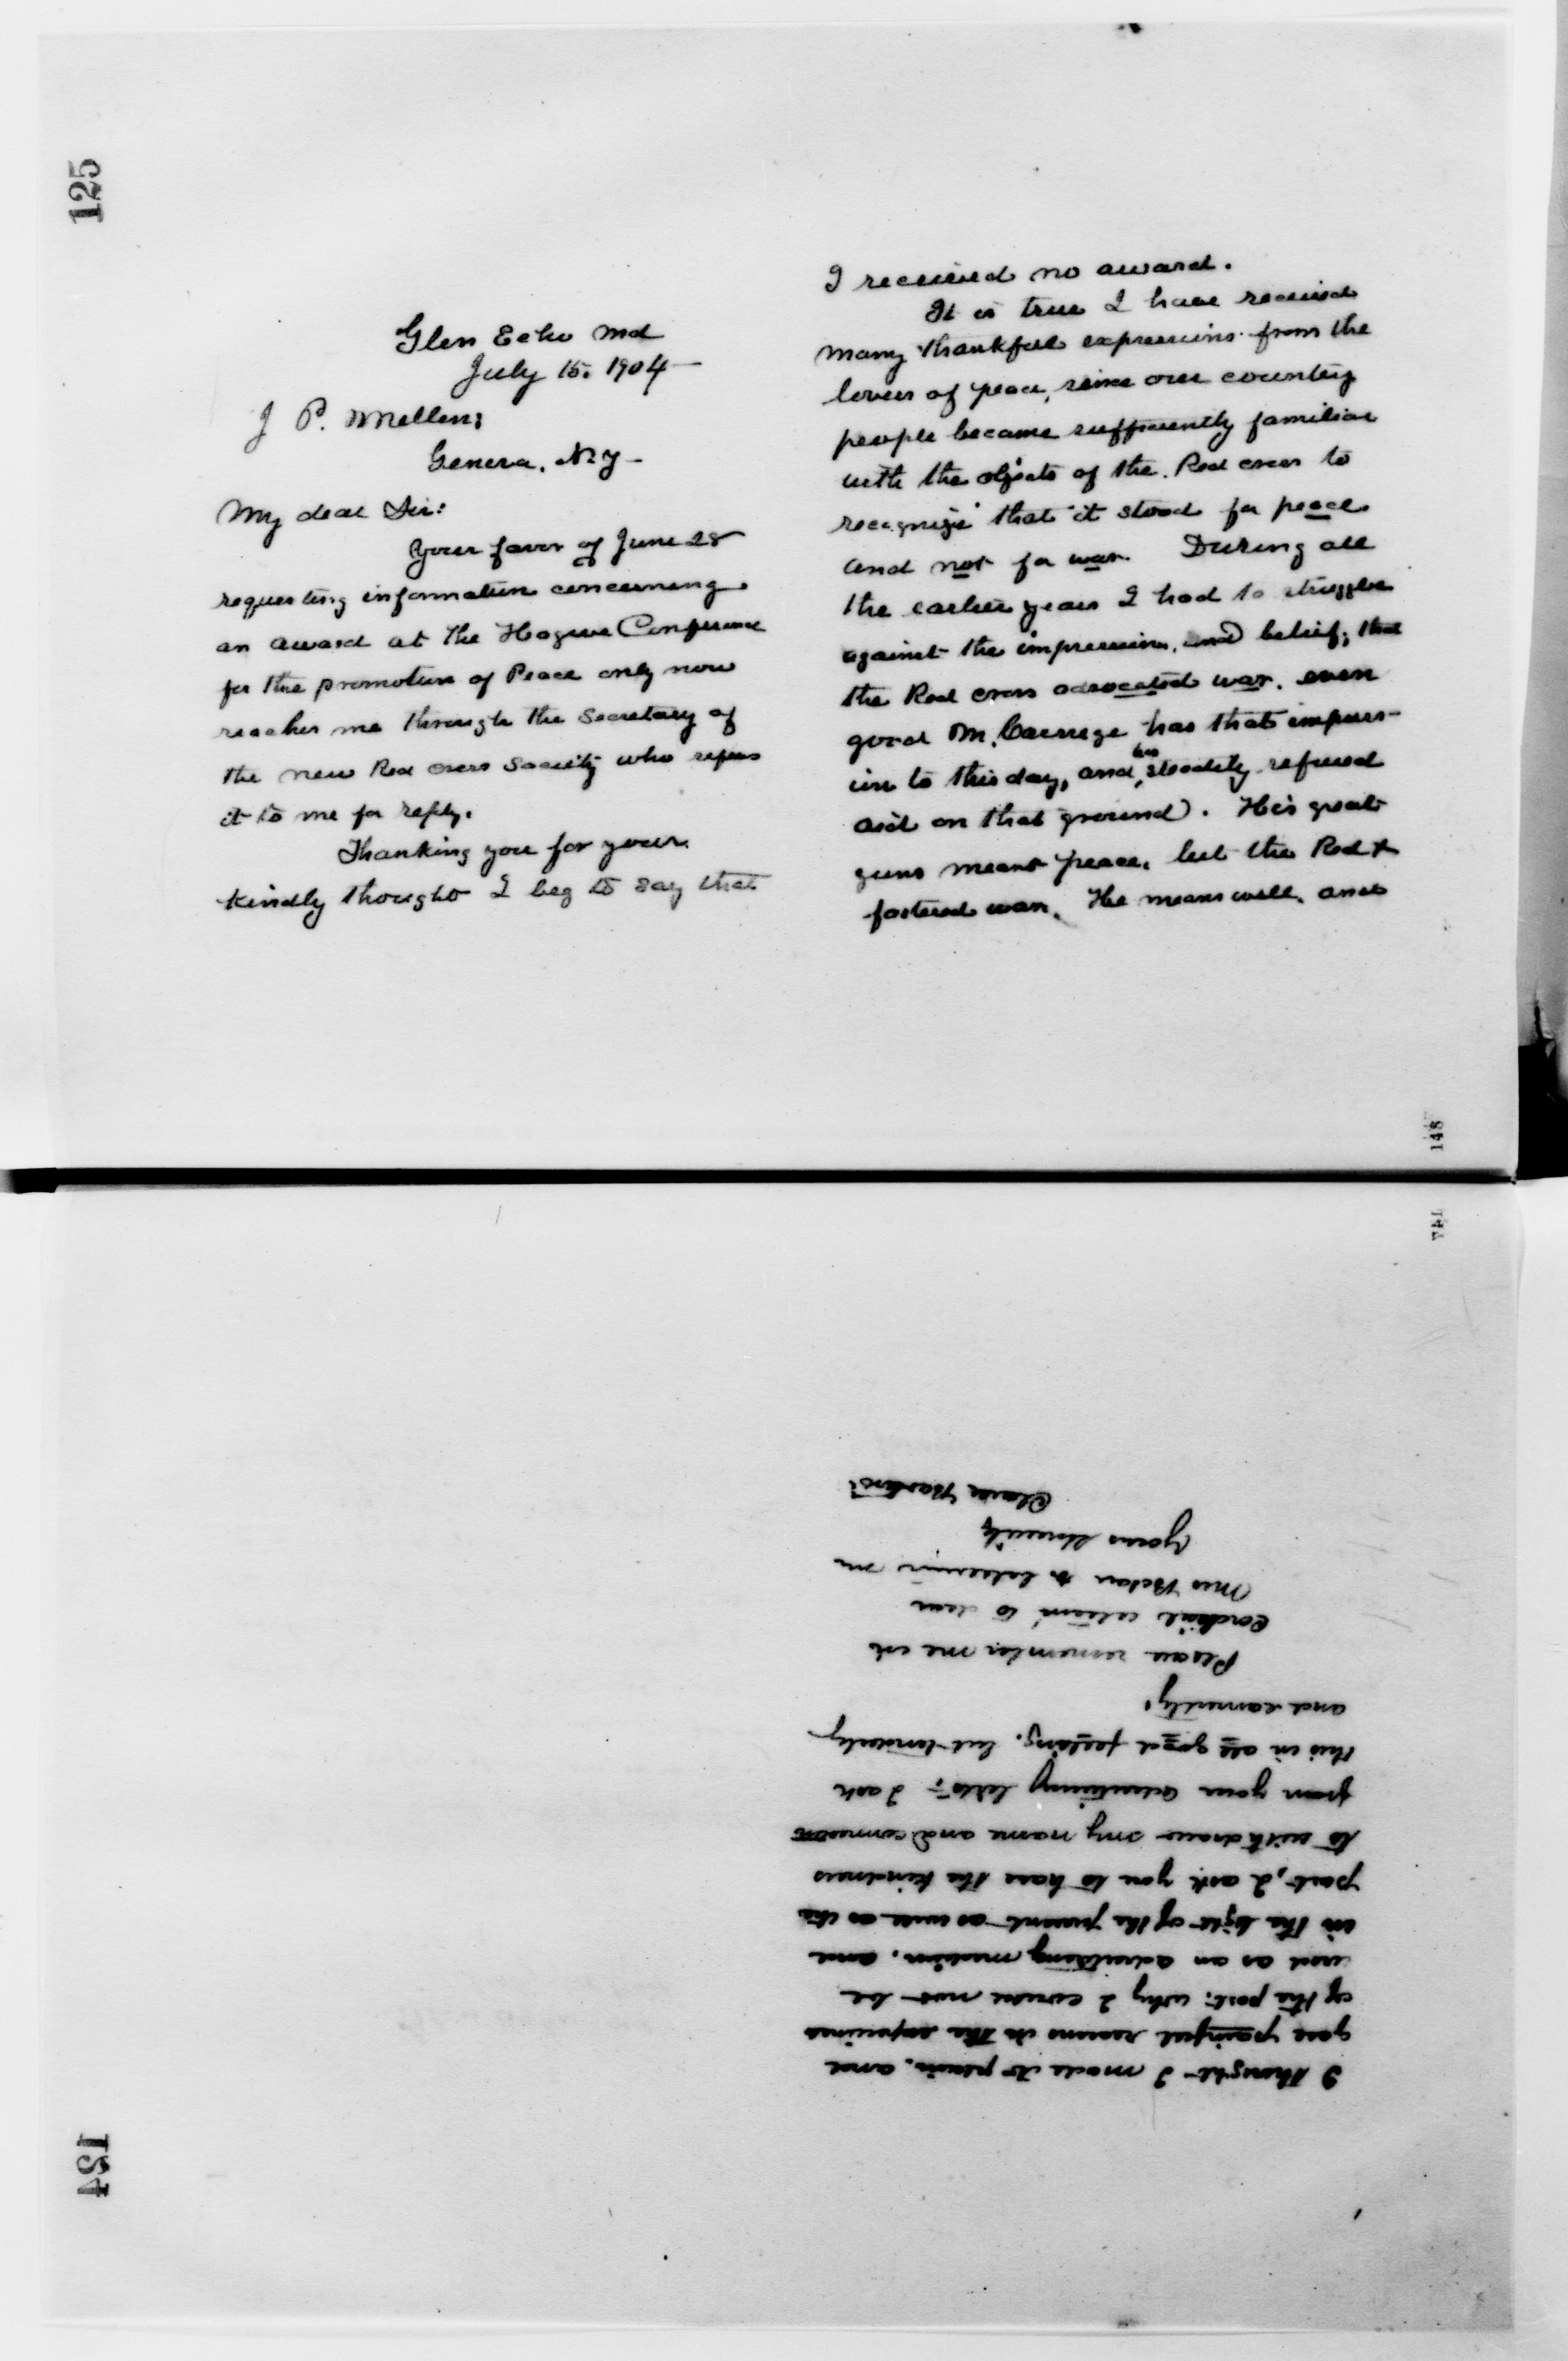 125
Glen Echo Md
July 15. 1904 —
J P. Mellen;
Geneva, N.Y —
My dear Sir:
Your favor of June 28
requesting information concerning
an award at the Hague Conference
for the promotion of Peace only now
reaches me through the Secretary of
the new Red cross Society who refers
it to me for reply.
Thanking you for your
kindly thought I beg to say that
I received no award.
It is true I have received
many thankful expressions from the
lovers of peace, since our country
people became sufficiently familiar
with the objects of the Red cross to
recognize that it stood for peace
and not for war. During all
the earlier years I had to struggle
against the impression, and belief, that
the Red cross advocated war. even
good Mr. Carnegie has that impress-
ion to this day, and has steadily refused
aid on that ground. His great
guns meant peace, but the Red +
fostered war. He means well. and
148
147
I thought I made it plain, and
gave painful reasons in the experience
of the past: why I could not be
used as an advertising medium. and
in the light of the present as well as the
past, I ask you to have the kindness
to withdraw my name and
from your advertising lists; I ask
this in all good feeling. but
and earnestly.
Please remember me in
Cordial esteem to dear
Mrs
Yours sincerely
Clara Barton
124